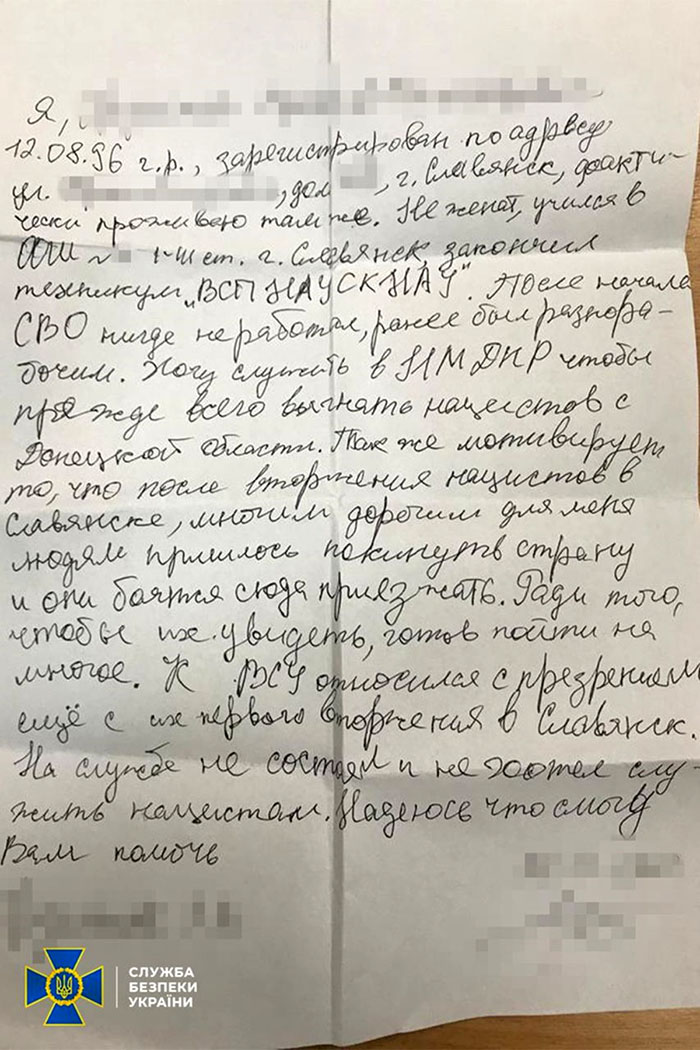 Я,
12.08.96 г.р., зарегистрирован по адресу
ул. , дом , г. Славянск, факти-
чески проживаю там же. Не женат, учился в
ОШ № 1-Ш ст. г. Славянск, закончил
техникум „ВСП НАУСКНАУ". После начала
СВО нигде не работал, ранее был разнора-
бочим. Хочу служить в НМ ДНР чтобы
прежде всего выгнать нацистов с
Донецкой области. Так же мотивирует
то, что после вторжения нацистов в
Славянске, многим дорогим для меня
людям пришлось покинуть страну
и они боятся сюда приезжать. Ради того,
чтобы их увидеть, готов пойти на
многое. К ВСУ относился с презрением
ещё с их первого вторжения в Славянск.
На службе не состоял и не хотел слу-
жить нацистам. Надеюсь что смогу
Вам помочь
СЛУЖБА
БЕЗПЕКИ
УКРАЇНИ